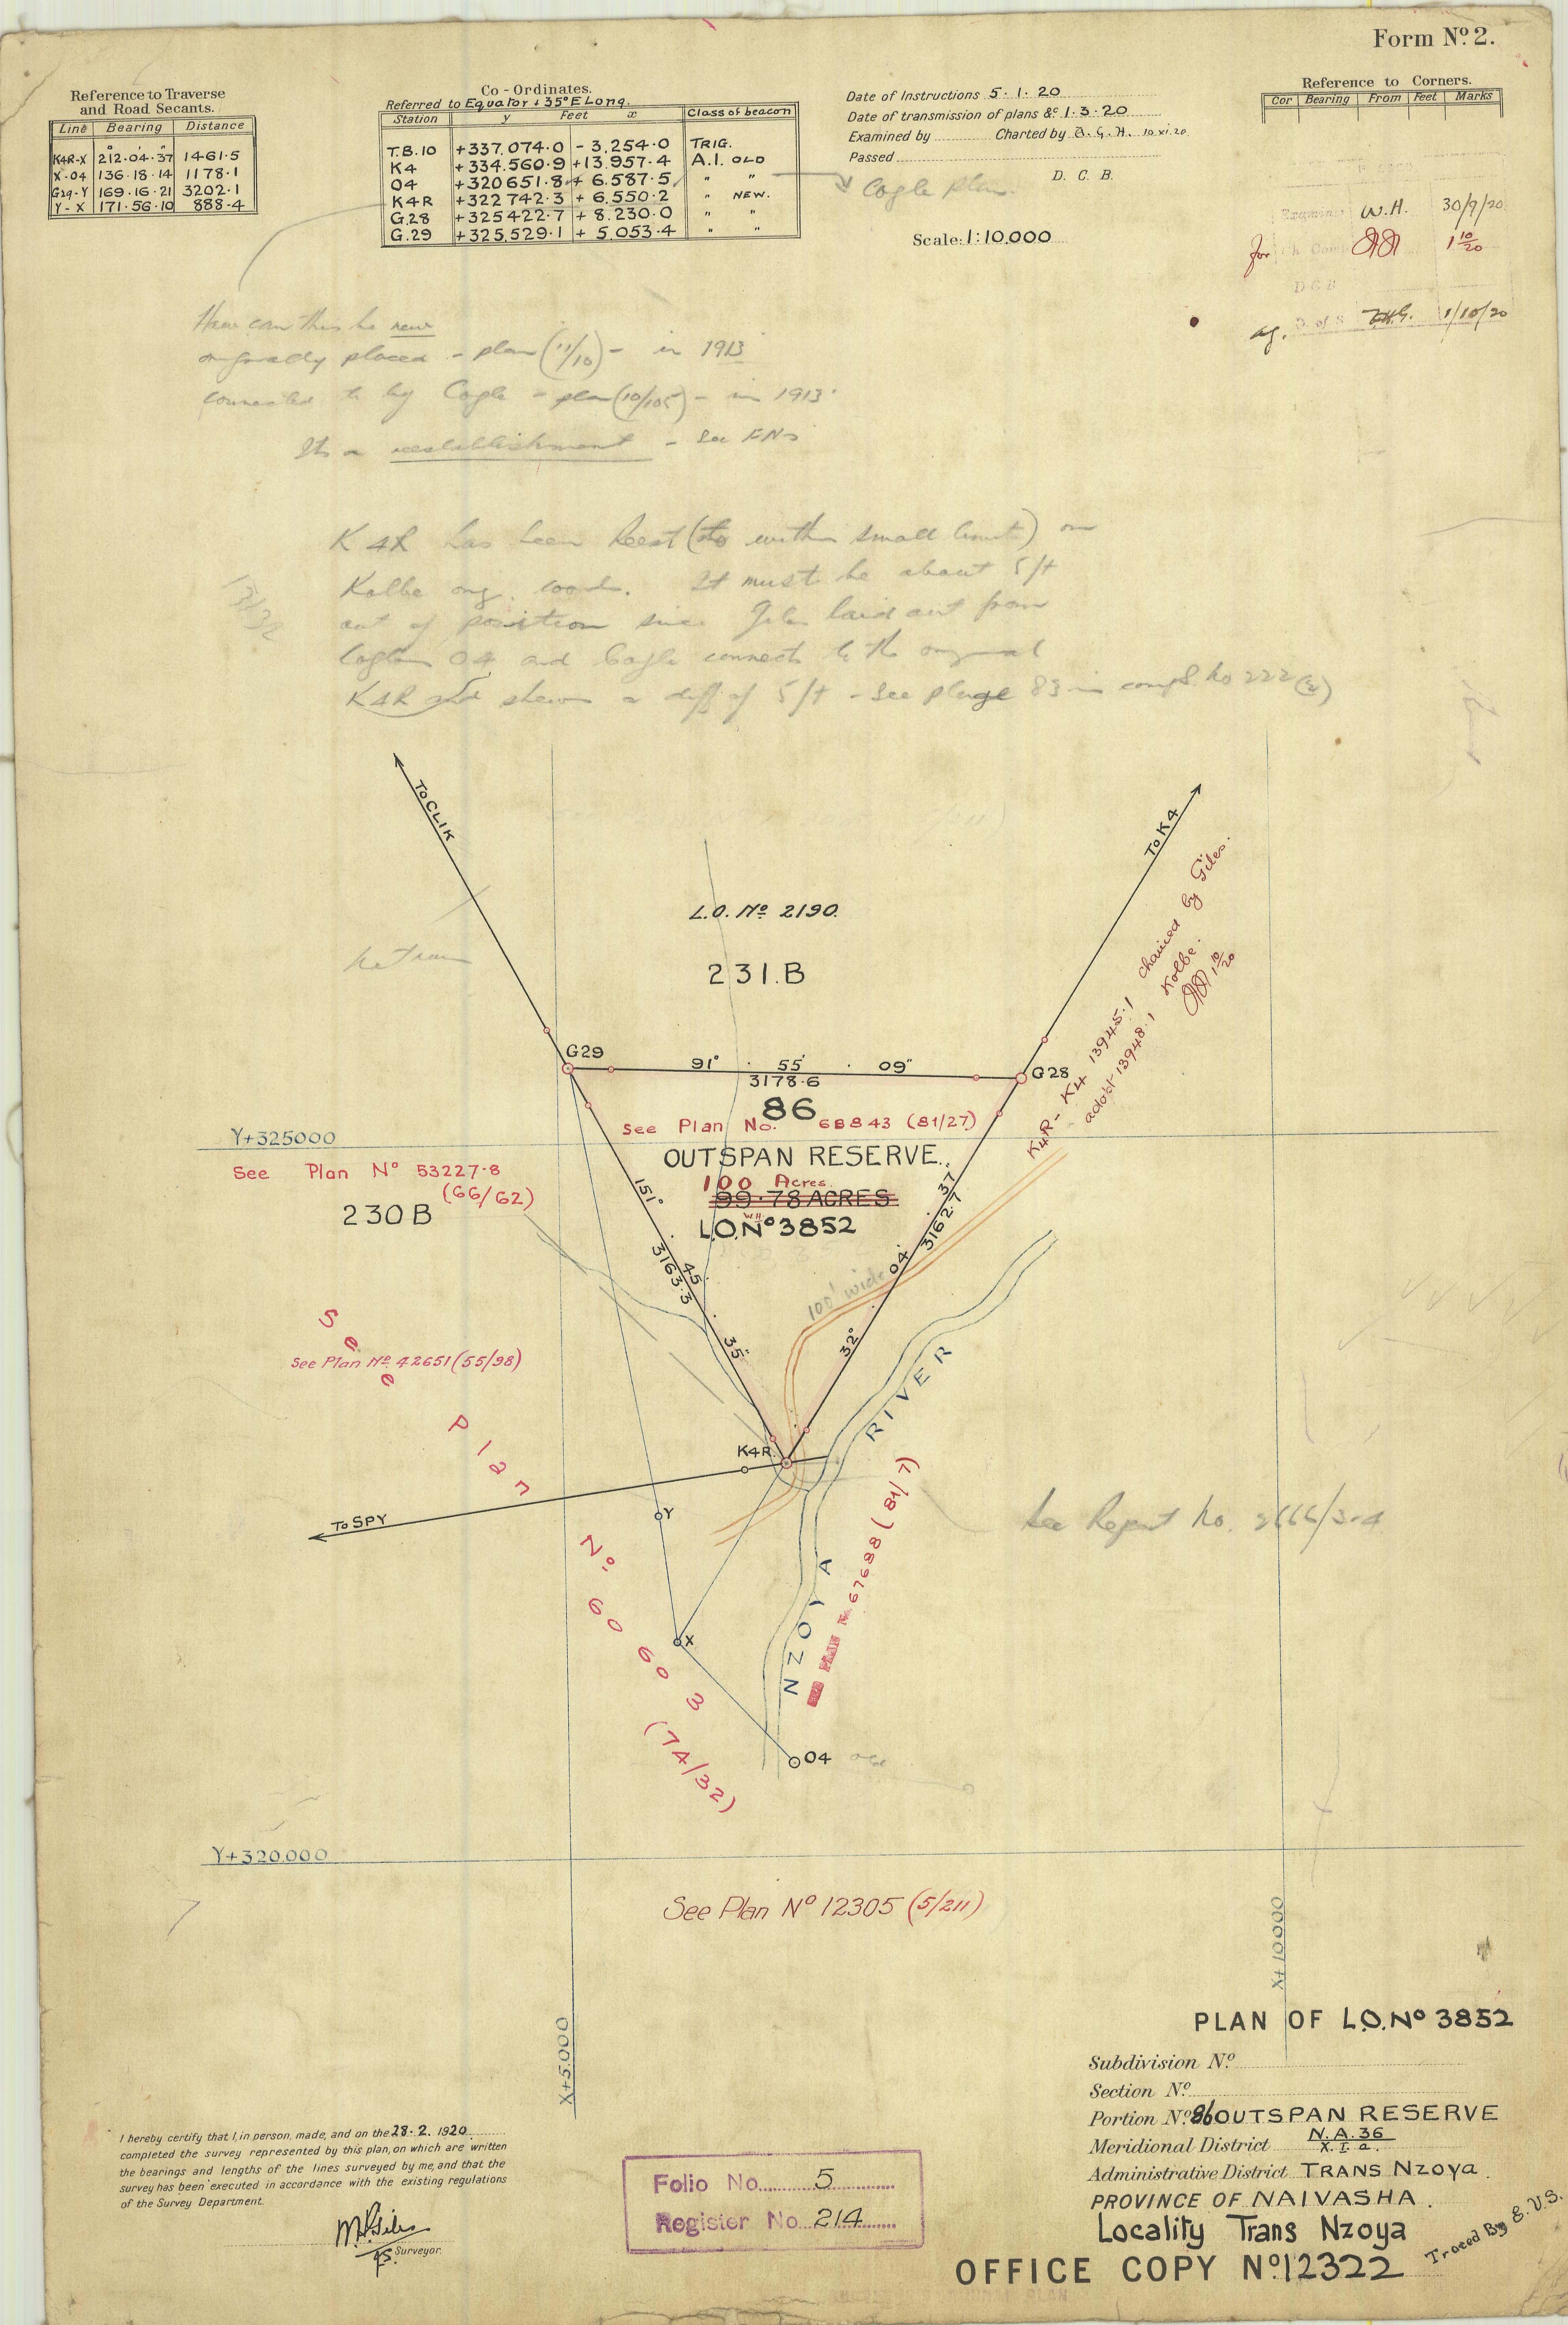 Form Nº 2.
Reference to Traverse
and Road Secants.
Line Bearing Distance
K4R-X 212·04·37 1461·5
X-04 136·18·14 1178·1
G29-Y 169·16·21 3202·1
Y-X 171·56·10 888·4
Co-Ordinates.
Referred to Equator & 35° E Long.
Station y Feet x Class of beacon
T.B.10 +337,074·0 -3,254·0 TRIG.
K4 +334,560·9 +13,957·4 A.I. OLD
04 +320651·8 +6,587·5 " "
K4R +322742·3 +6,550·2 " NEW.
G.28 +325422·7 +8,230·0 " "
G.29 +325,529·1 +5,053·4 " "
Date of Instructions 5·1·20
Date of transmission of plans &c 1·3·20
Examined by Charted by B.G.H. 10.xi.20
Passed
D. C. B.
Cogle Plan.
Scale: 1:10,000
Reference to Corners.
Cor Bearing From Feet Marks
W.H. 30/9/20
for 1 10/20
D C B
ag. 1/10/20
How can this be new
originally placed - plan (11/10) - in 1913
connected to by Cogle - plan (10/105) - in 1913·
Its a reestablishment - See FNs
K4R has been Reest (to within small limits) on
Kolbe orig. coord. It must be about 5 ft
out of position since Giles laid out from
Cogles 04 and Cogle connects to the original
K4R and shews a diff of 5 ft - See page 83 in comps. No 222 (2)
To CLIK
To K4
L.O. Nº 2190.
231.B
K4R - K4 13945·1 chained by Giles.
adopt 13948·1 Kolbe.
1 10/20
G29
91° 55' 09"
3178·6
G28
86
See Plan No. 68843 (81/27)
Y+325000
OUTSPAN RESERVE.
See Plan Nº 53227·8
(66/62)
100 Acres.
99·78 ACRES
W.H.
230B
L.O.Nº 3852
151° 45' 35"
3163·3
32° 04' 37"
3162·7
100' wide
See Plan Nº 42651 (55/98)
See Plan Nº 60603 (74/32)
K4R
RIVER
To SPY
Y
See Report No. 2666/3-4
NZOYA
SEE PLAN No. 67688 (81/7)
X
04
Y+320,000
See Plan Nº 12305 (5/211)
X+5,000
X+10000
PLAN OF L.O.Nº 3852
Subdivision Nº
Section Nº
Portion Nº 86 OUTSPAN RESERVE
Meridional District N.A.36
X.I.a.
Administrative District TRANS Nzoya.
PROVINCE OF NAIVASHA.
Locality Trans Nzoya
Traced By E.V.S.
OFFICE COPY Nº 12322
I hereby certify that I, in person, made, and on the 28·2·1920
completed the survey represented by this plan, on which are written
the bearings and lengths of the lines surveyed by me, and that the
survey has been executed in accordance with the existing regulations
of the Survey Department.
Surveyor.
Folio No. 5
Register No. 214